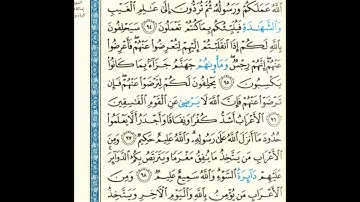 اللَّهُ عَمَلَكُمْ وَرَسُولُهُ ثُمَّ تُرَدُّونَ إِلَى عَالِمِ الْغَيْبِ
وَالشَّهَادَةِ فَيُنَبِّئُكُم بِمَا كُنتُمْ تَعْمَلُونَ ٩٤ سَيَحْلِفُونَ
بِاللَّهِ لَكُمْ إِذَا انقَلَبْتُمْ إِلَيْهِمْ لِتُعْرِضُوا عَنْهُمْ فَأَعْرِضُوا
عَنْهُمْ إِنَّهُمْ رِجْسٌ وَمَأْوَاهُمْ جَهَنَّمُ جَزَاءً بِمَا كَانُوا
يَكْسِبُونَ ٩٥ يَحْلِفُونَ لَكُمْ لِتَرْضَوْا عَنْهُمْ فَإِن
تَرْضَوْا عَنْهُمْ فَإِنَّ اللَّهَ لَا يَرْضَى عَنِ الْقَوْمِ الْفَاسِقِينَ
٩٦ الْأَعْرَابُ أَشَدُّ كُفْرًا وَنِفَاقًا وَأَجْدَرُ أَلَّا يَعْلَمُوا
حُدُودَ مَا أَنزَلَ اللَّهُ عَلَى رَسُولِهِ وَاللَّهُ عَلِيمٌ حَكِيمٌ ٩٧ وَمِنَ
الْأَعْرَابِ مَن يَتَّخِذُ مَا يُنفِقُ مَغْرَمًا وَيَتَرَبَّصُ بِكُمُ الدَّوَائِرَ
عَلَيْهِمْ دَائِرَةُ السَّوْءِ وَاللَّهُ سَمِيعٌ عَلِيمٌ ٩٨ وَمِنَ
الْأَعْرَابِ مَن يُؤْمِنُ بِاللَّهِ وَالْيَوْمِ الْآخِرِ وَيَتَّخِذُ